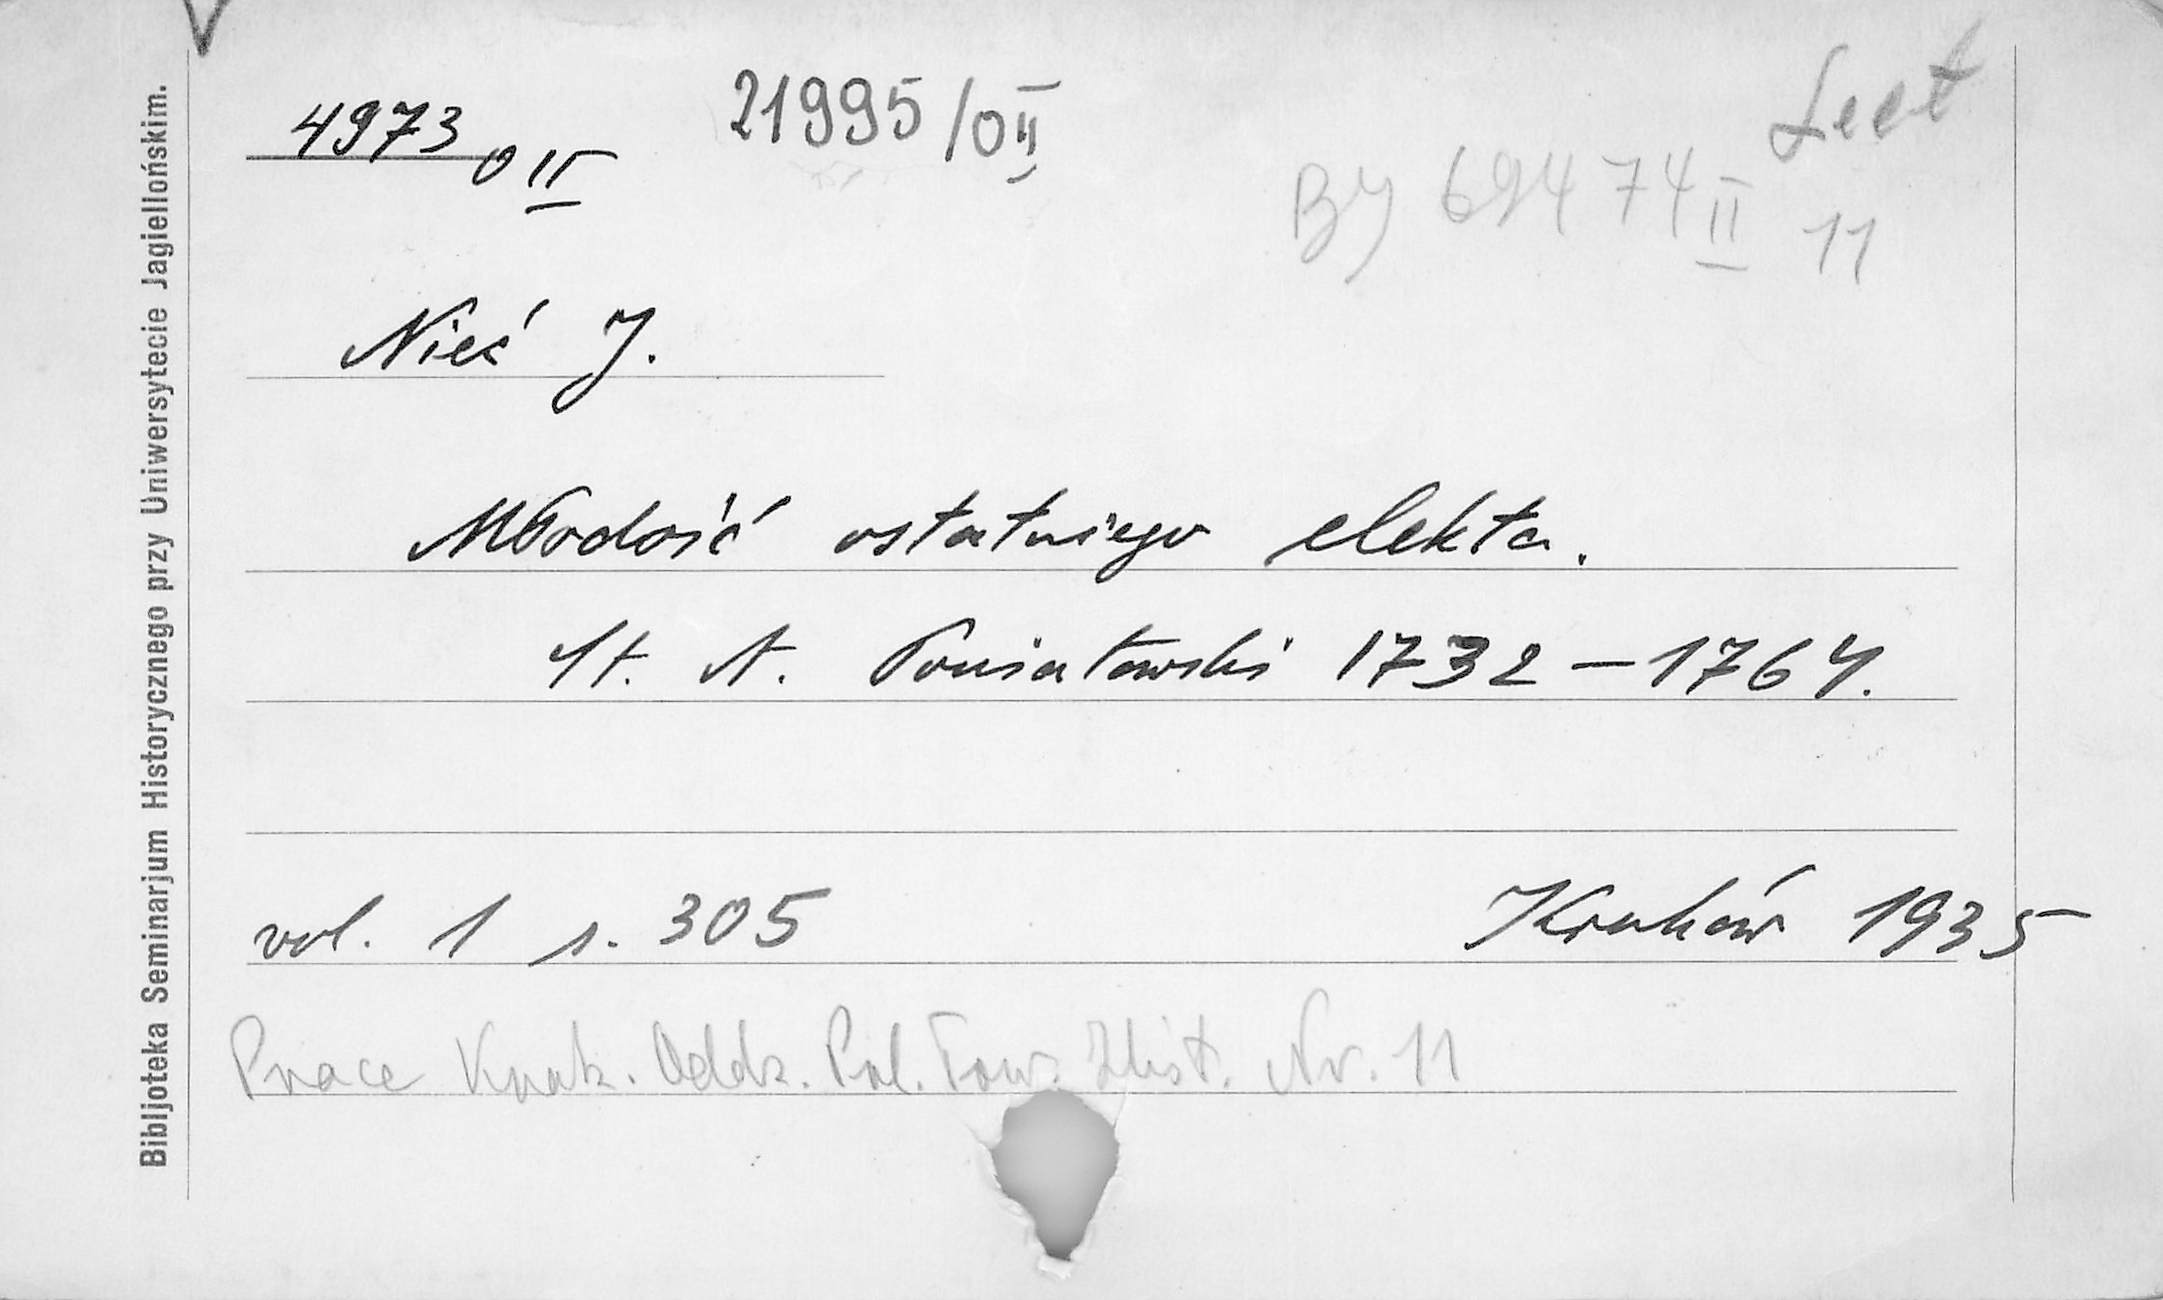 4973 O II 21995/O II Lect
BJ 69474 II 11
Nieć J.
Młodość ostatniego elekta.
St. A. Poniatowski 1732 – 1764.
vol. 1 s. 305 Kraków 1935
Prace Krak. Oddz. Pol. Tow. Hist. Nr. 11
Bibljoteka Seminarjum Historycznego przy Uniwersytecie Jagiellońskim.